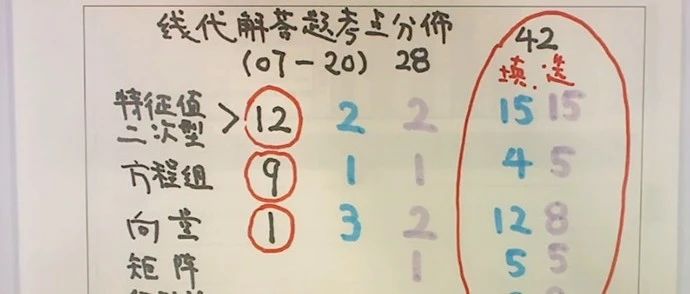 线代解答题考点分佈 42
(07-20) 28 填.选
特征值
二次型 > 12 2 2 15 15
方程组 9 1 1 4 5
向量 1 3 2 12 8
矩阵 1 5 5